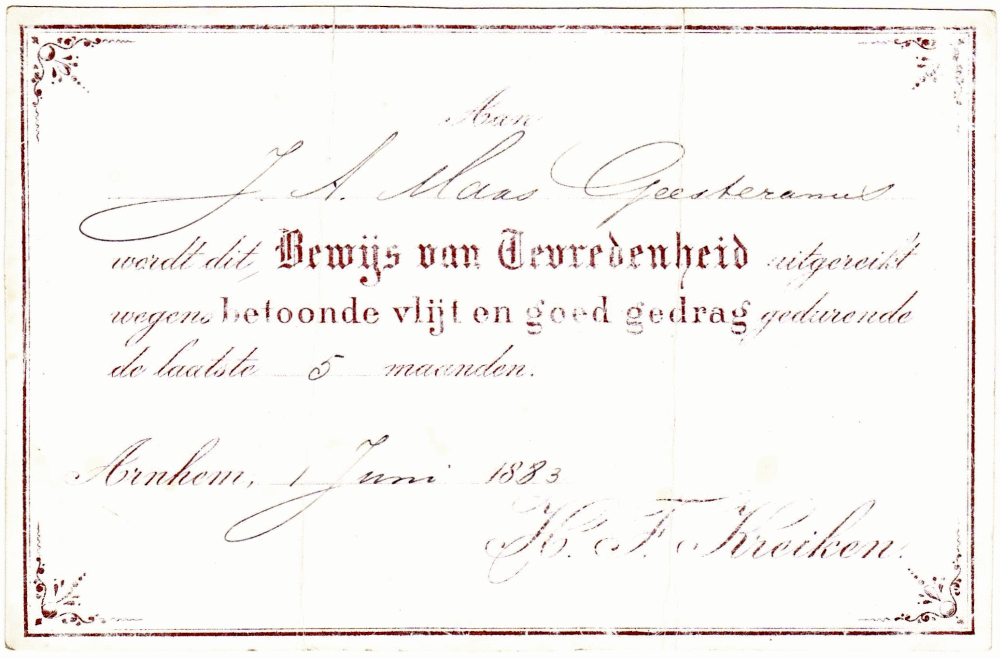 Aan
J. A. Maas Geesteranus
wordt dit Bewijs van Tevredenheid uitgereikt
wegens betoonde vlijt en goed gedrag gedurende
de laatste 5 maanden.
Arnhem, 1 Juni 1883
H. F. Kreiken.